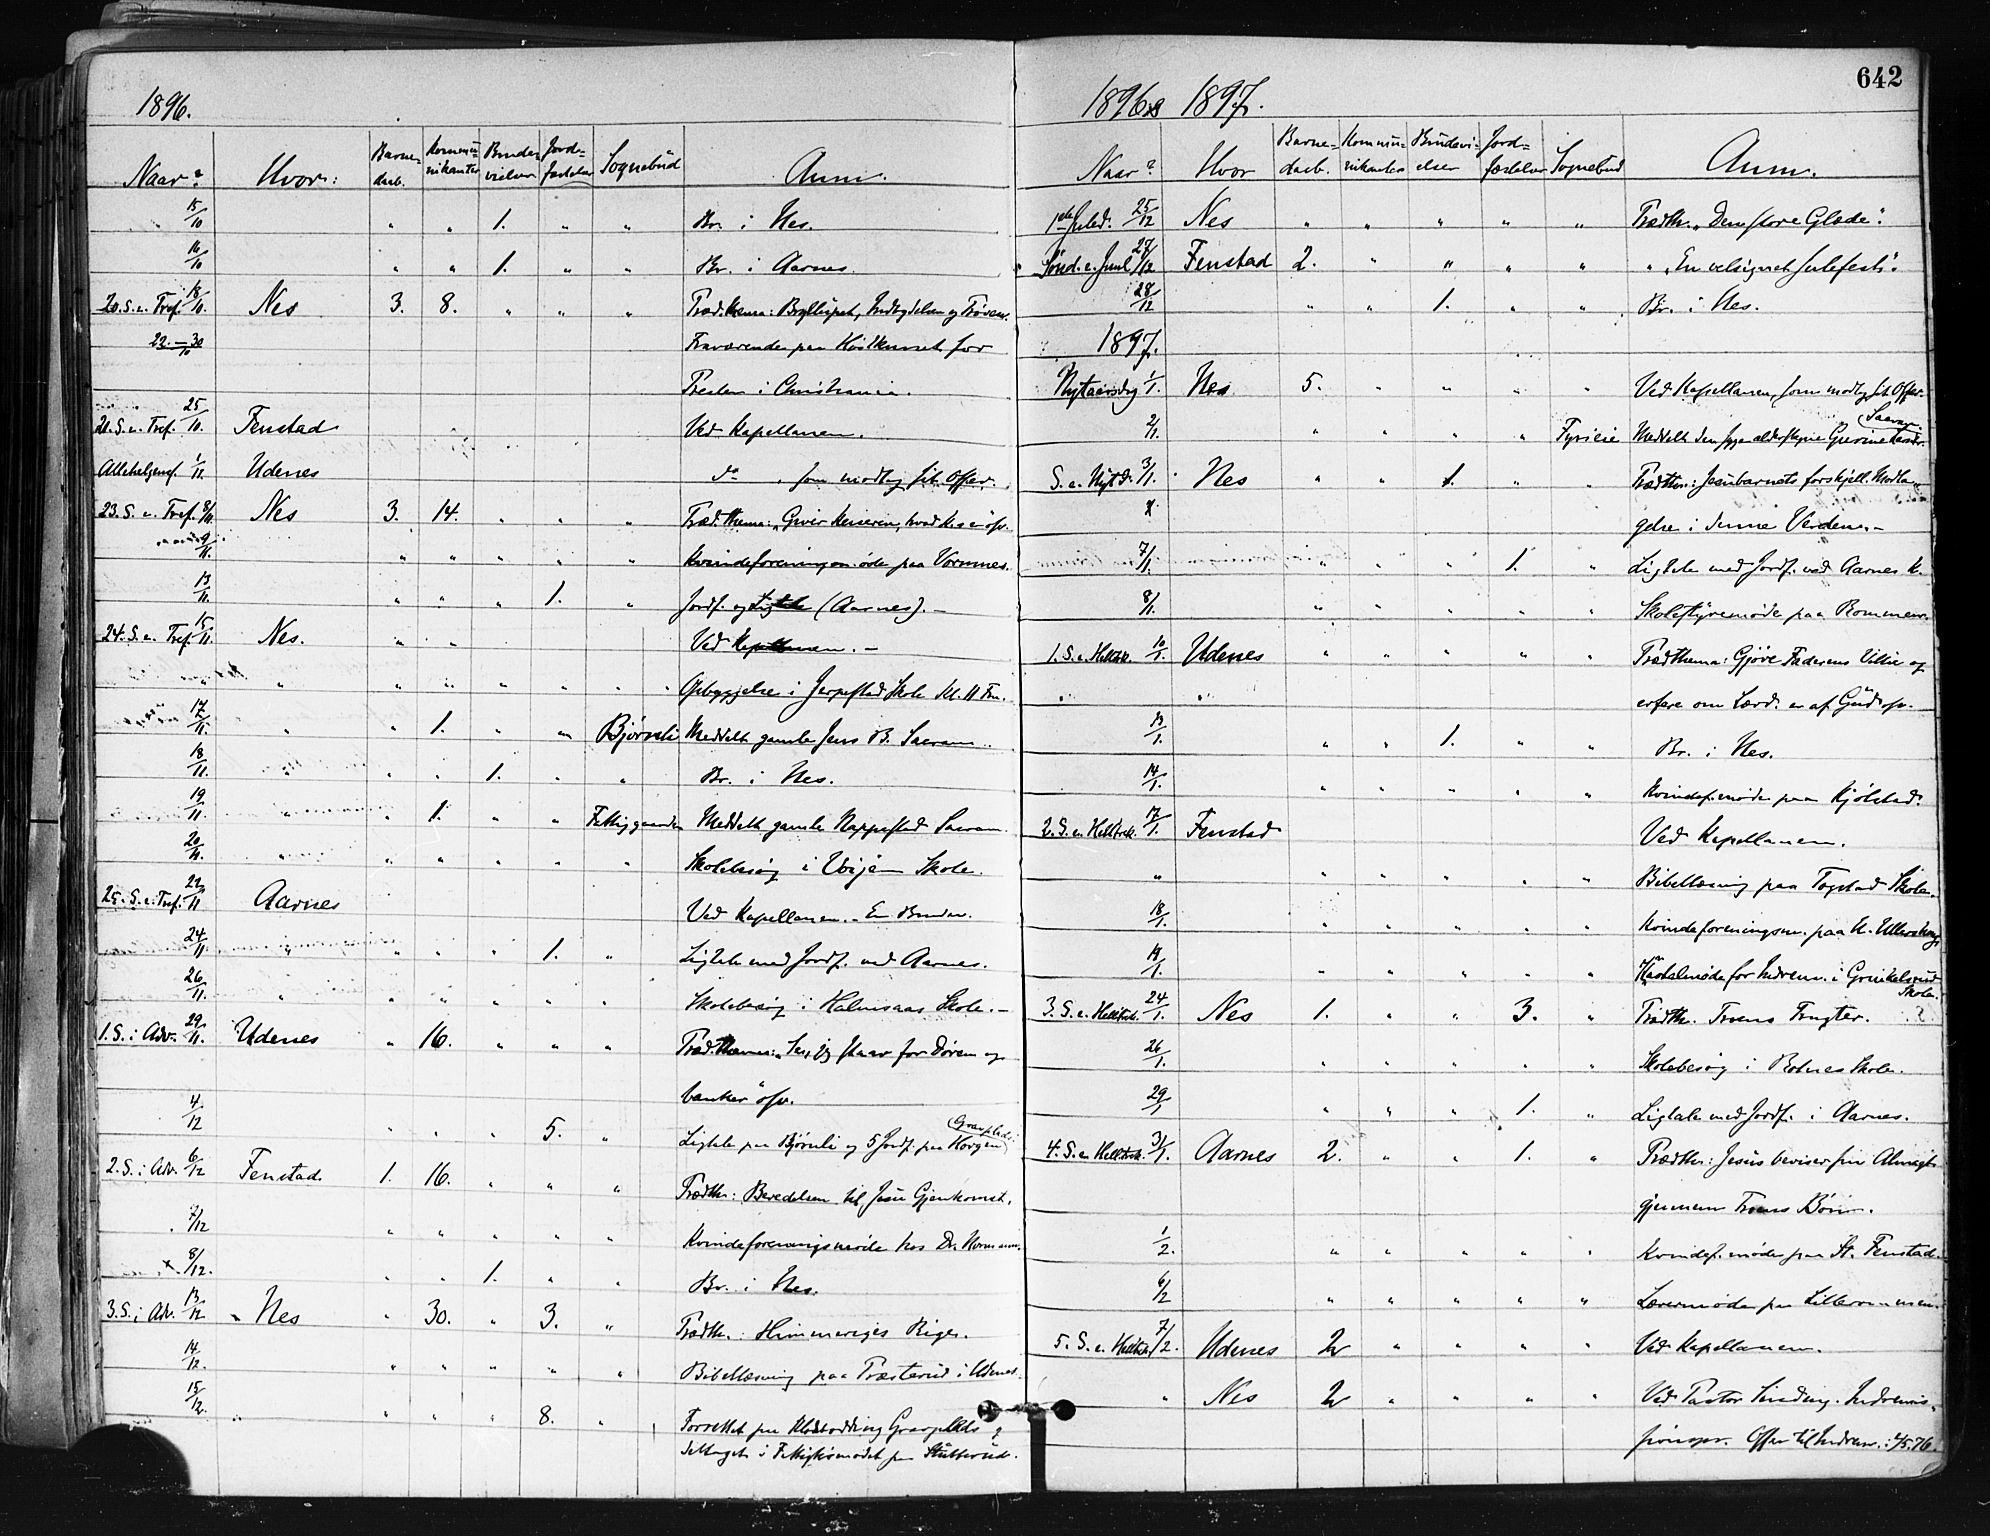 1896.
Naar? Hvor: Barne-daab. Kommunikanter Brudevielser Jordfæstelser Sognebud Anm.
15/10 " " 1. " " Br. i Nes.
16/10 " " 1. " " Br. i Aarnes.
20. S. e. Tref. 18/10. Nes 3. 8. " " " Præd. thema: Bryllupet, Indbydelsen og
22.–30/10 Fraværende paa for
Prester i Christiania.
21. S. e. Tref. 25/10. Fenstad Ved Kapellanen.
Allehelgensf. 1/11. Udenes do , som modtog sit Offer.
23. S. e. Tref. 8/11 Nes 3. 14. " " " Præd. thema: "Giver Keiseren, hvad Ks. er" osv.
9/11. " " " " " Kvindeforeningsmøde paa Vormnes.
13/11. " " " 1. " Jordf. og Ligtale (Aarnes). –
24. S. e. Tref. 15/11. Nes. " " Ved Kapellanen. –
" " " " " " " Opbyggelse i Jerpestad Skole Kl. 11 Fm.
17/11. " " 1. " " Bjørnli Meddelt gamle Jens B. Sacram.
18/11. " " 1. " " Br. i Nes.
19/11 " 1. " " Fattiggaarden Meddelt gamle Nappestad Sacram.
20/11. " " " " " " Skolebesøg i Skole.
25. S. e. Tref. 22/11 Aarnes Ved Kapellanen. – En Brudev.
24/11. " " " " 1. " Ligtale med Jordf. ved Aarnes.
26/11. " " " " " " Skolebesøg i Halmsaas Skole. –
1. S. i Adv. 29/11. Udenes " 16. " " " Præd. thema: "Se, jeg staar for Døren og
banker" osv.
4/12 " " " 5. " Ligtale paa Bjørnli og 5 Jordf. paa Horgen Gravplads.
2. S. i Adv. 6/12 Fenstad 1. 16. " " " Prædth: Beredelsen til Jesu Gjenkomst.
7/12 " " " " " Kvindeforeningsmøde hos Dr.
8/12. " " 1. " " Br. i Nes.
3. S. i Adv. 13/12 Nes " 30. " 3. " Prædth. Himmeriges Rige.
14/12. " " " " " Bibellæsning paa Præsterud i Udenes.
15/12. " " " " 8. " Forrettet paa Gravplads &
deltaget i Fattigkommødet paa Stutterud.
642
1896 & 1897.
Naar? Hvor Barne-daab. Kommunikanter Brudevielser Jordfæstelser Sognebud Anm.
1ste Juled. 25/12 Nes " " " " " Prædth. "Den store Glæde".
Sønd. e. Juul 27/12 Fenstad 2. " " " " " "En velsignet Julefest".
28/12 " " 1. " " Br. i Nes.
1897.
Nytaarsdag 1/1. Nes 5. " " " Ved Kapellanen, som modtog sit Offer.
2/1. " " " " Fyrieie Meddelt den syge alderstegne Gurine Sacram.
S. e. Nyt d. 3/1. Nes " " 1. " " Prædthm: Jesubarnets forskjell. Modta-
gelse i denne Verden. –
7/1. " " " 1. " Ligtale med Jordf. ved Aarnes K.
8/1. " " " " " Skolestyremøde paa Rommen.
1. S. e. Helltrek. 10/1. Udenes " " " " " Prædthema: Gjøre Faderens Villie og
" " erfare om Lærd. er af Gud osv.
13/1. " " 1. " " Br. i Nes.
14/1. " " " " " Kvindef. møde paa Kjølstad.
2. S. e. Helltrek. 17/1. Fenstad Ved Kapellanen.
" " " " " " Bibellæsning paa Togstad Skole.
18/1. " " " " " Kvindeforeningsm. paa N. Ullershoug
19/1. " " " " " for Indrem. i Grinkelsrud Skole.
3. S. e. Helltrek. 24/1. Nes 1. " " 3. " Prædth. Troens Frugter.
26/1. " " " " " Skolebesøg i Rotnes Skole.
29/1 " " " 1. " Ligtale med Jordf. i Aarnes.
4. S. e. Helltrek. 31/1. Aarnes 2. " " 1. " Prædth: Jesus beviser sin Almagt
gjennem Troens Bøn.
1/2. " " " " " Kvindef. møde paa St. Fenstad
6/2 " " " " " Lærermøde paa Lillerommen.
5. S. e. Helltrek 7/2. Udenes 2 " " " " Ved Kapellanen.
" Nes 2 " " " " Ved Pastor Sinding. Indremis-
sionspr. Offer til Indrem.: